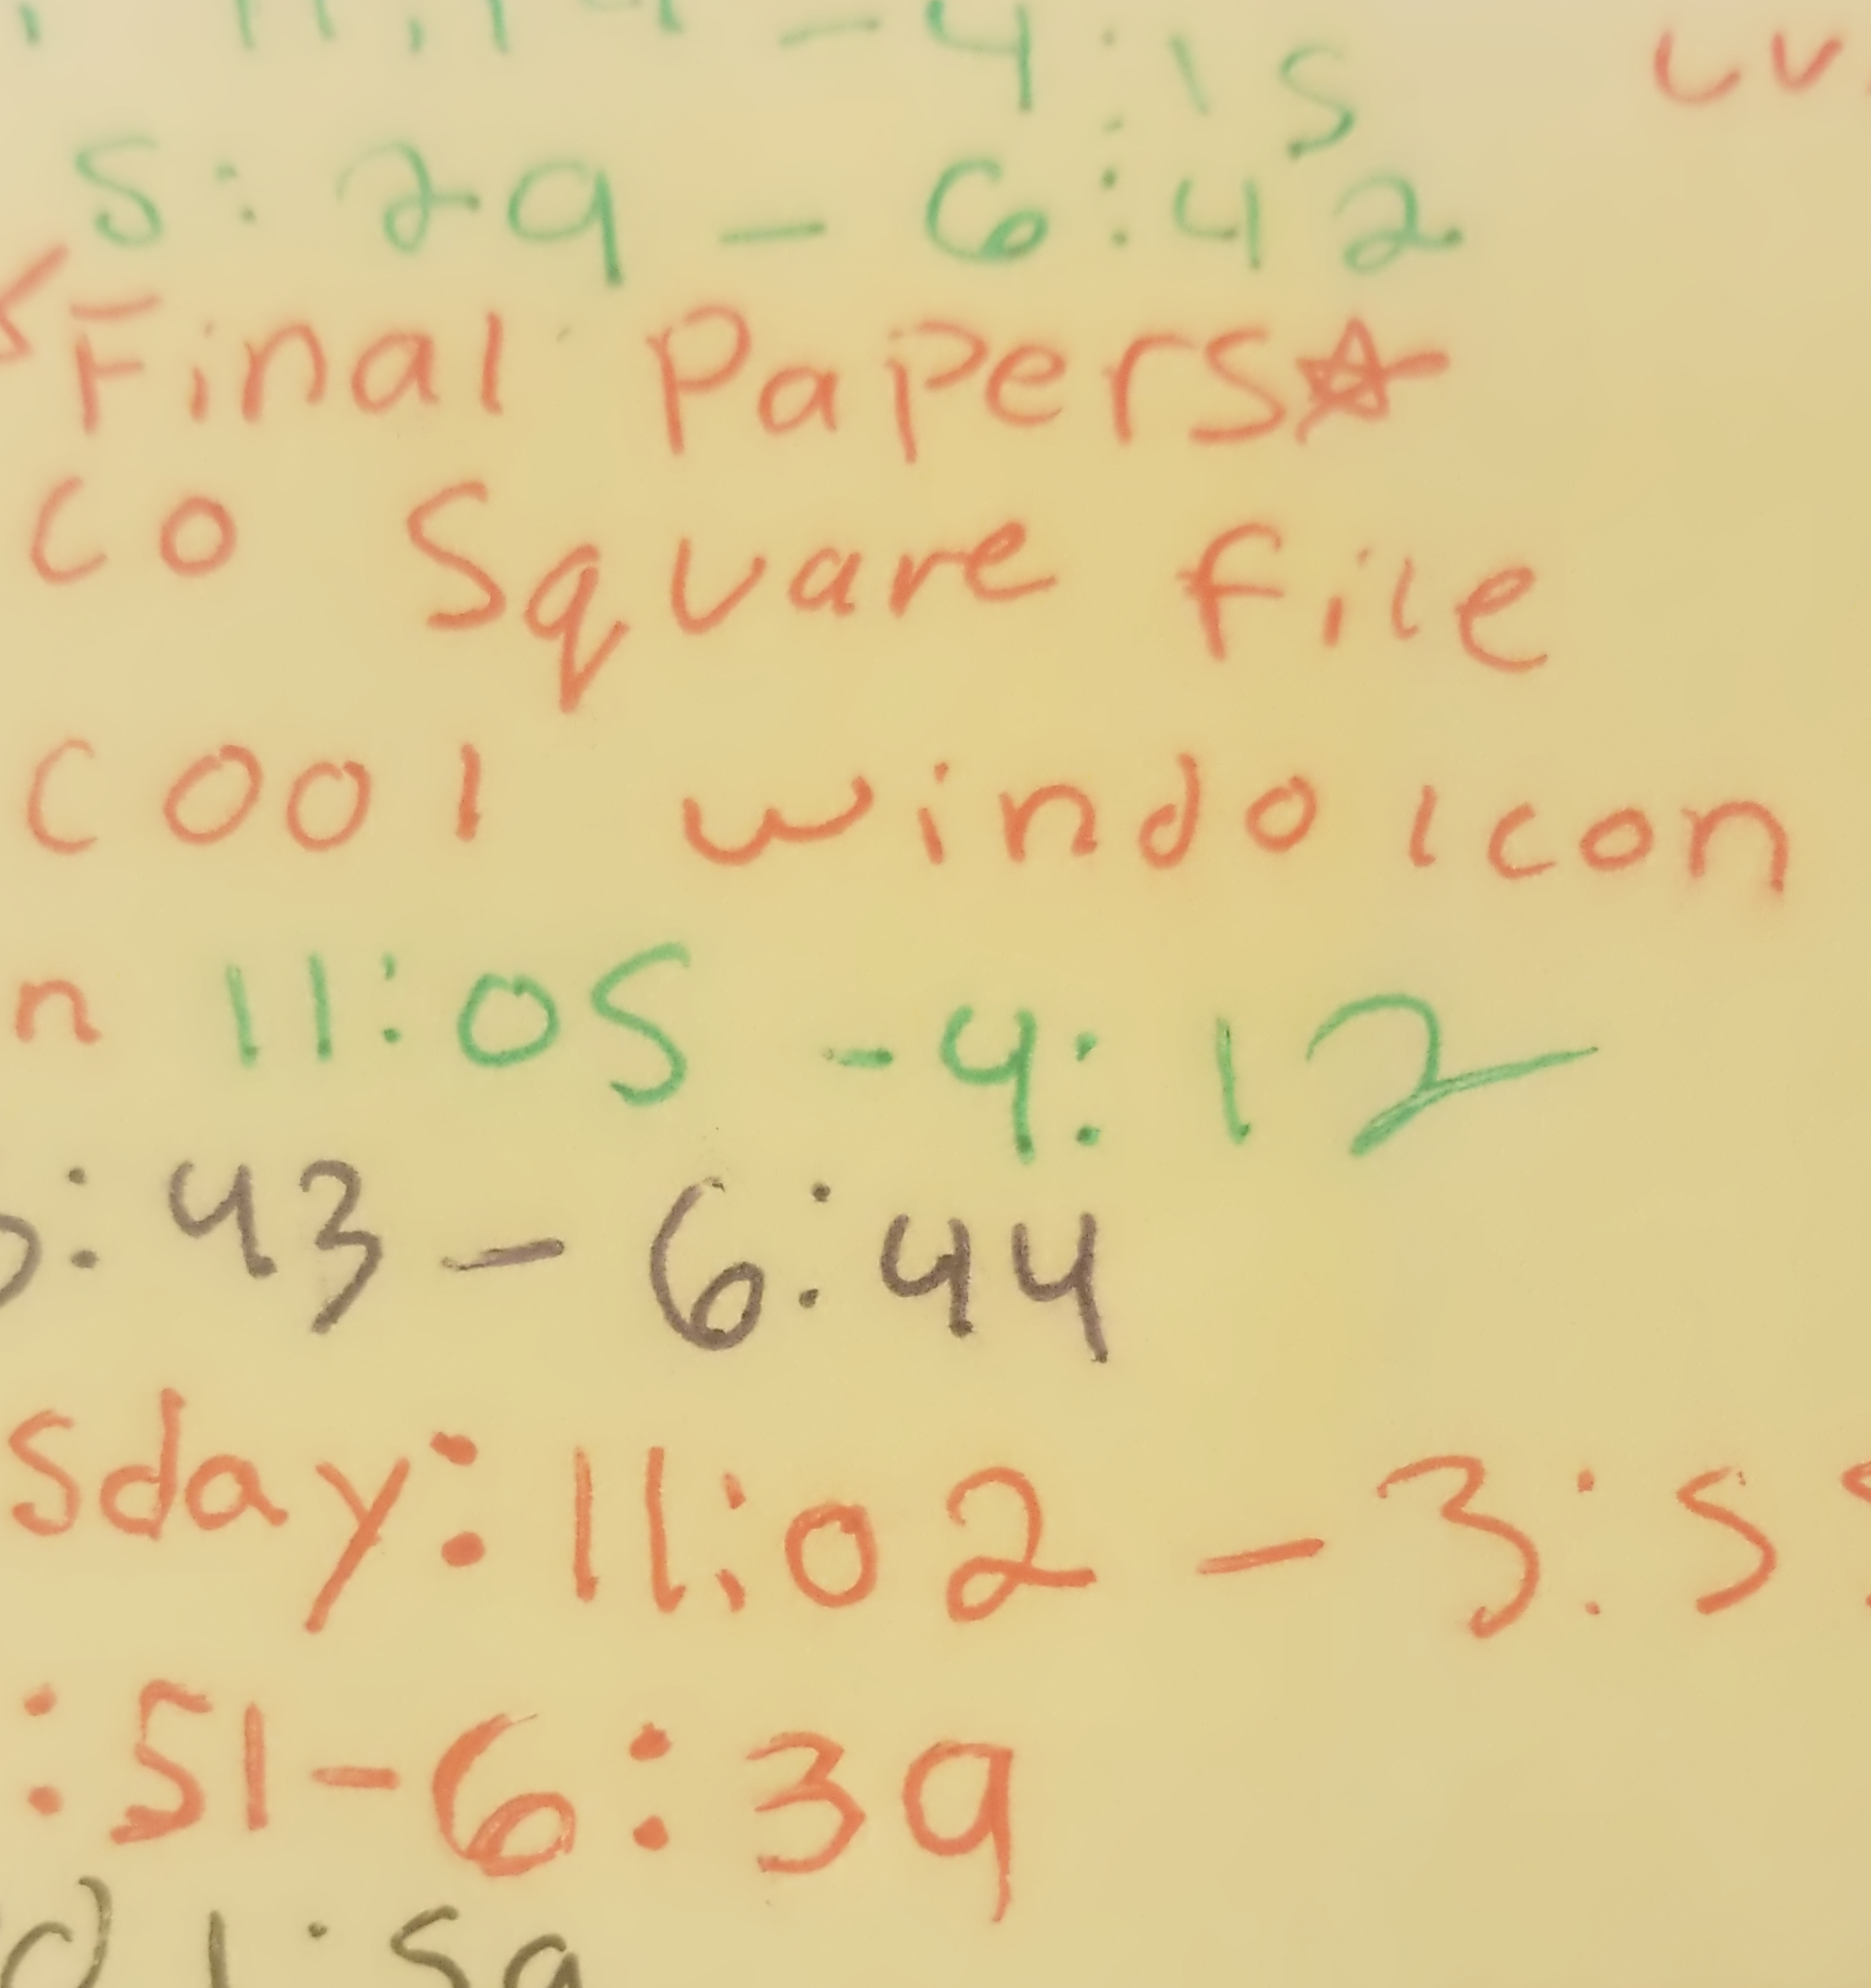 4:15
5:29 - 6:42
Final Papers
CO Square file
Cool windo Icon
n 11:05 - 4:12
:43 - 6:44
sday: 11:02 - 3:5
:51 - 6:39